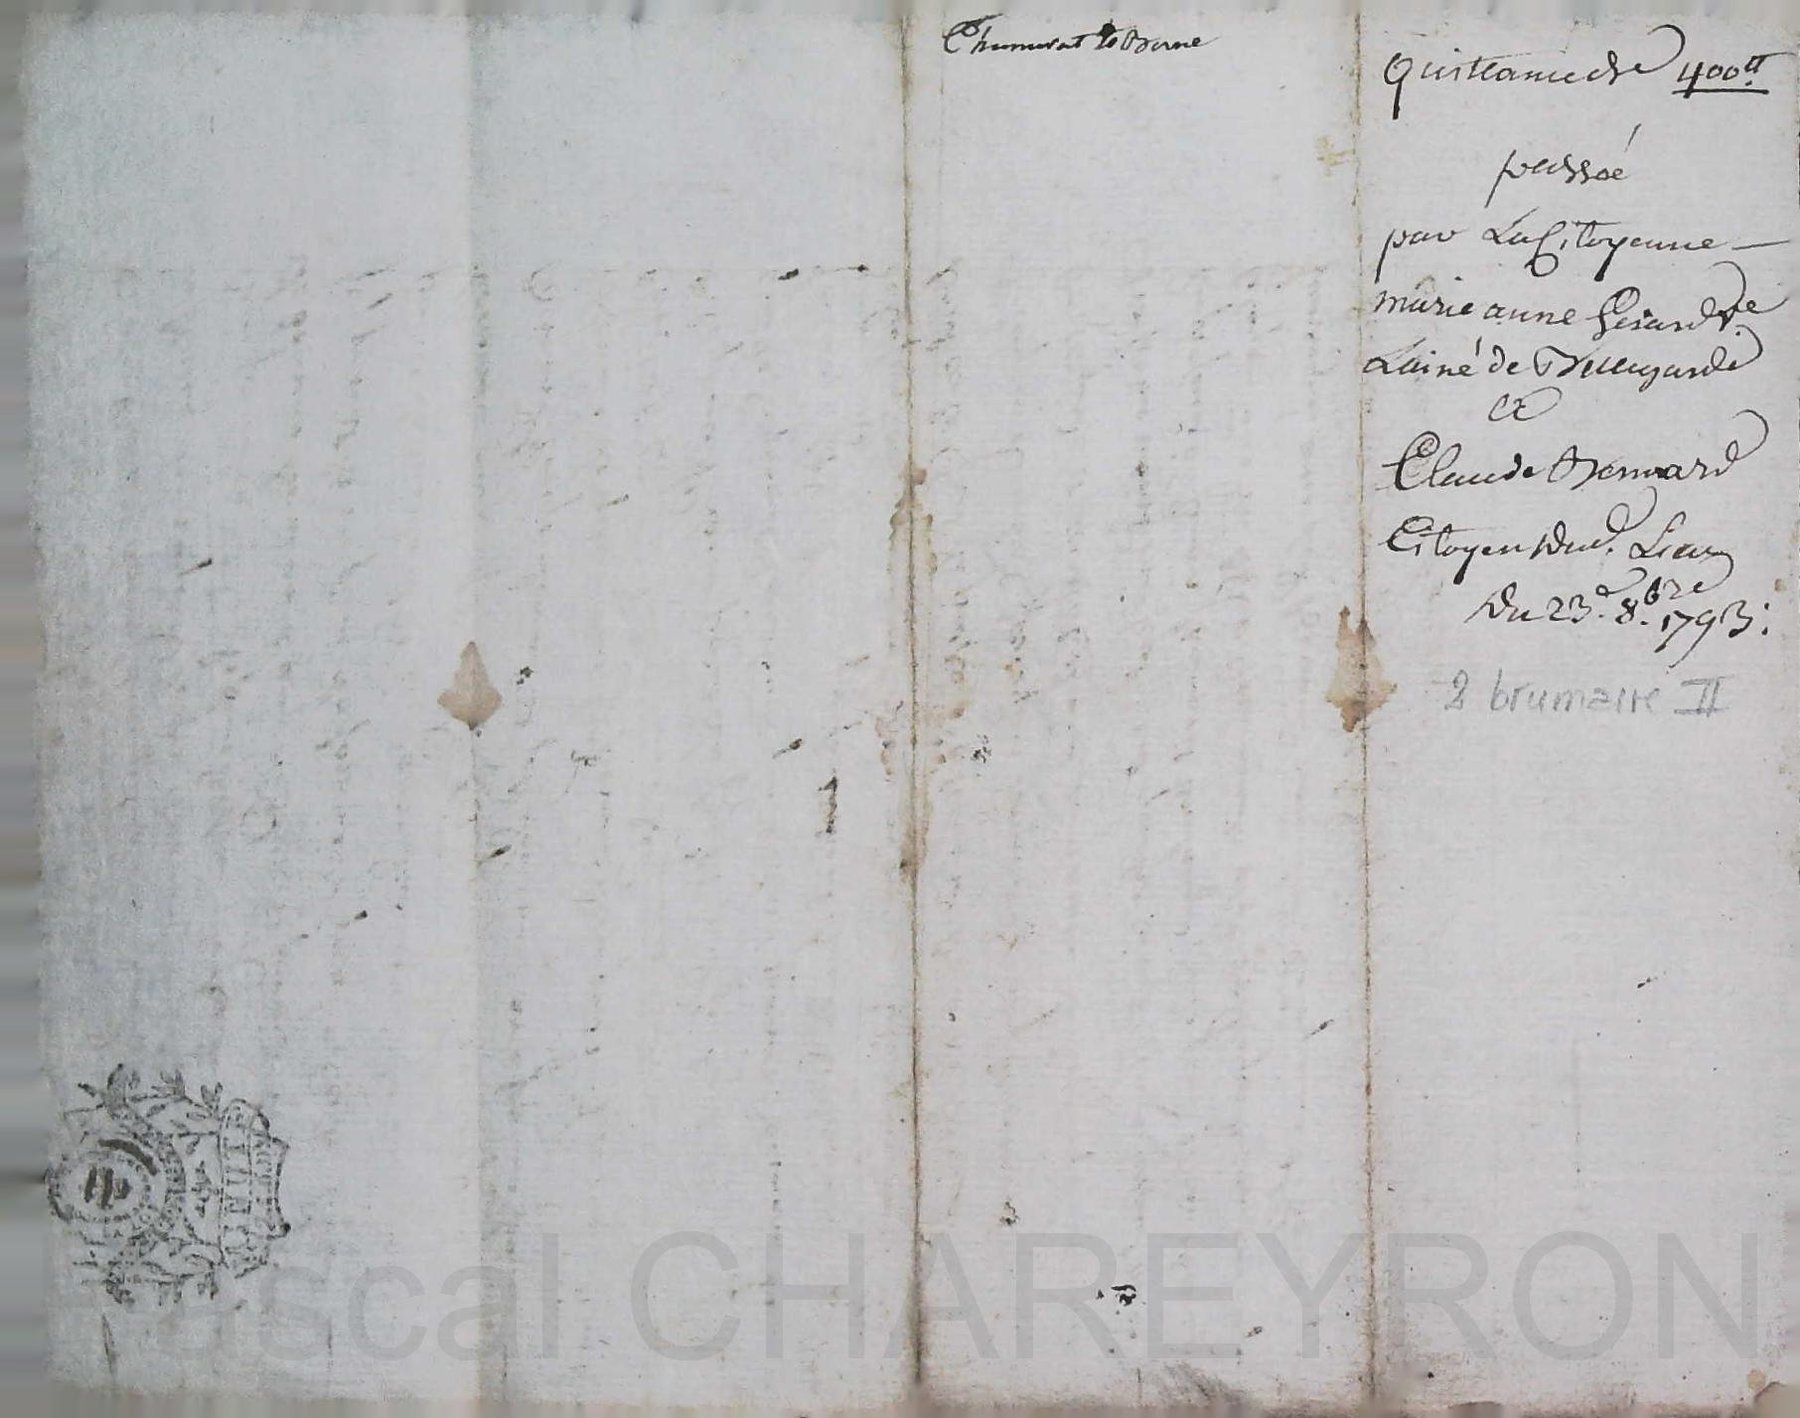 Quittance de 400tt
passée
par La Citoyenne —
marie anne Girard ve
Lainé de Bellegarde
et
Claude Bernard
Citoyen dud. Lieu
du 23e 8bre 1793:
2 brumaire II
Pascal CHAREYRON